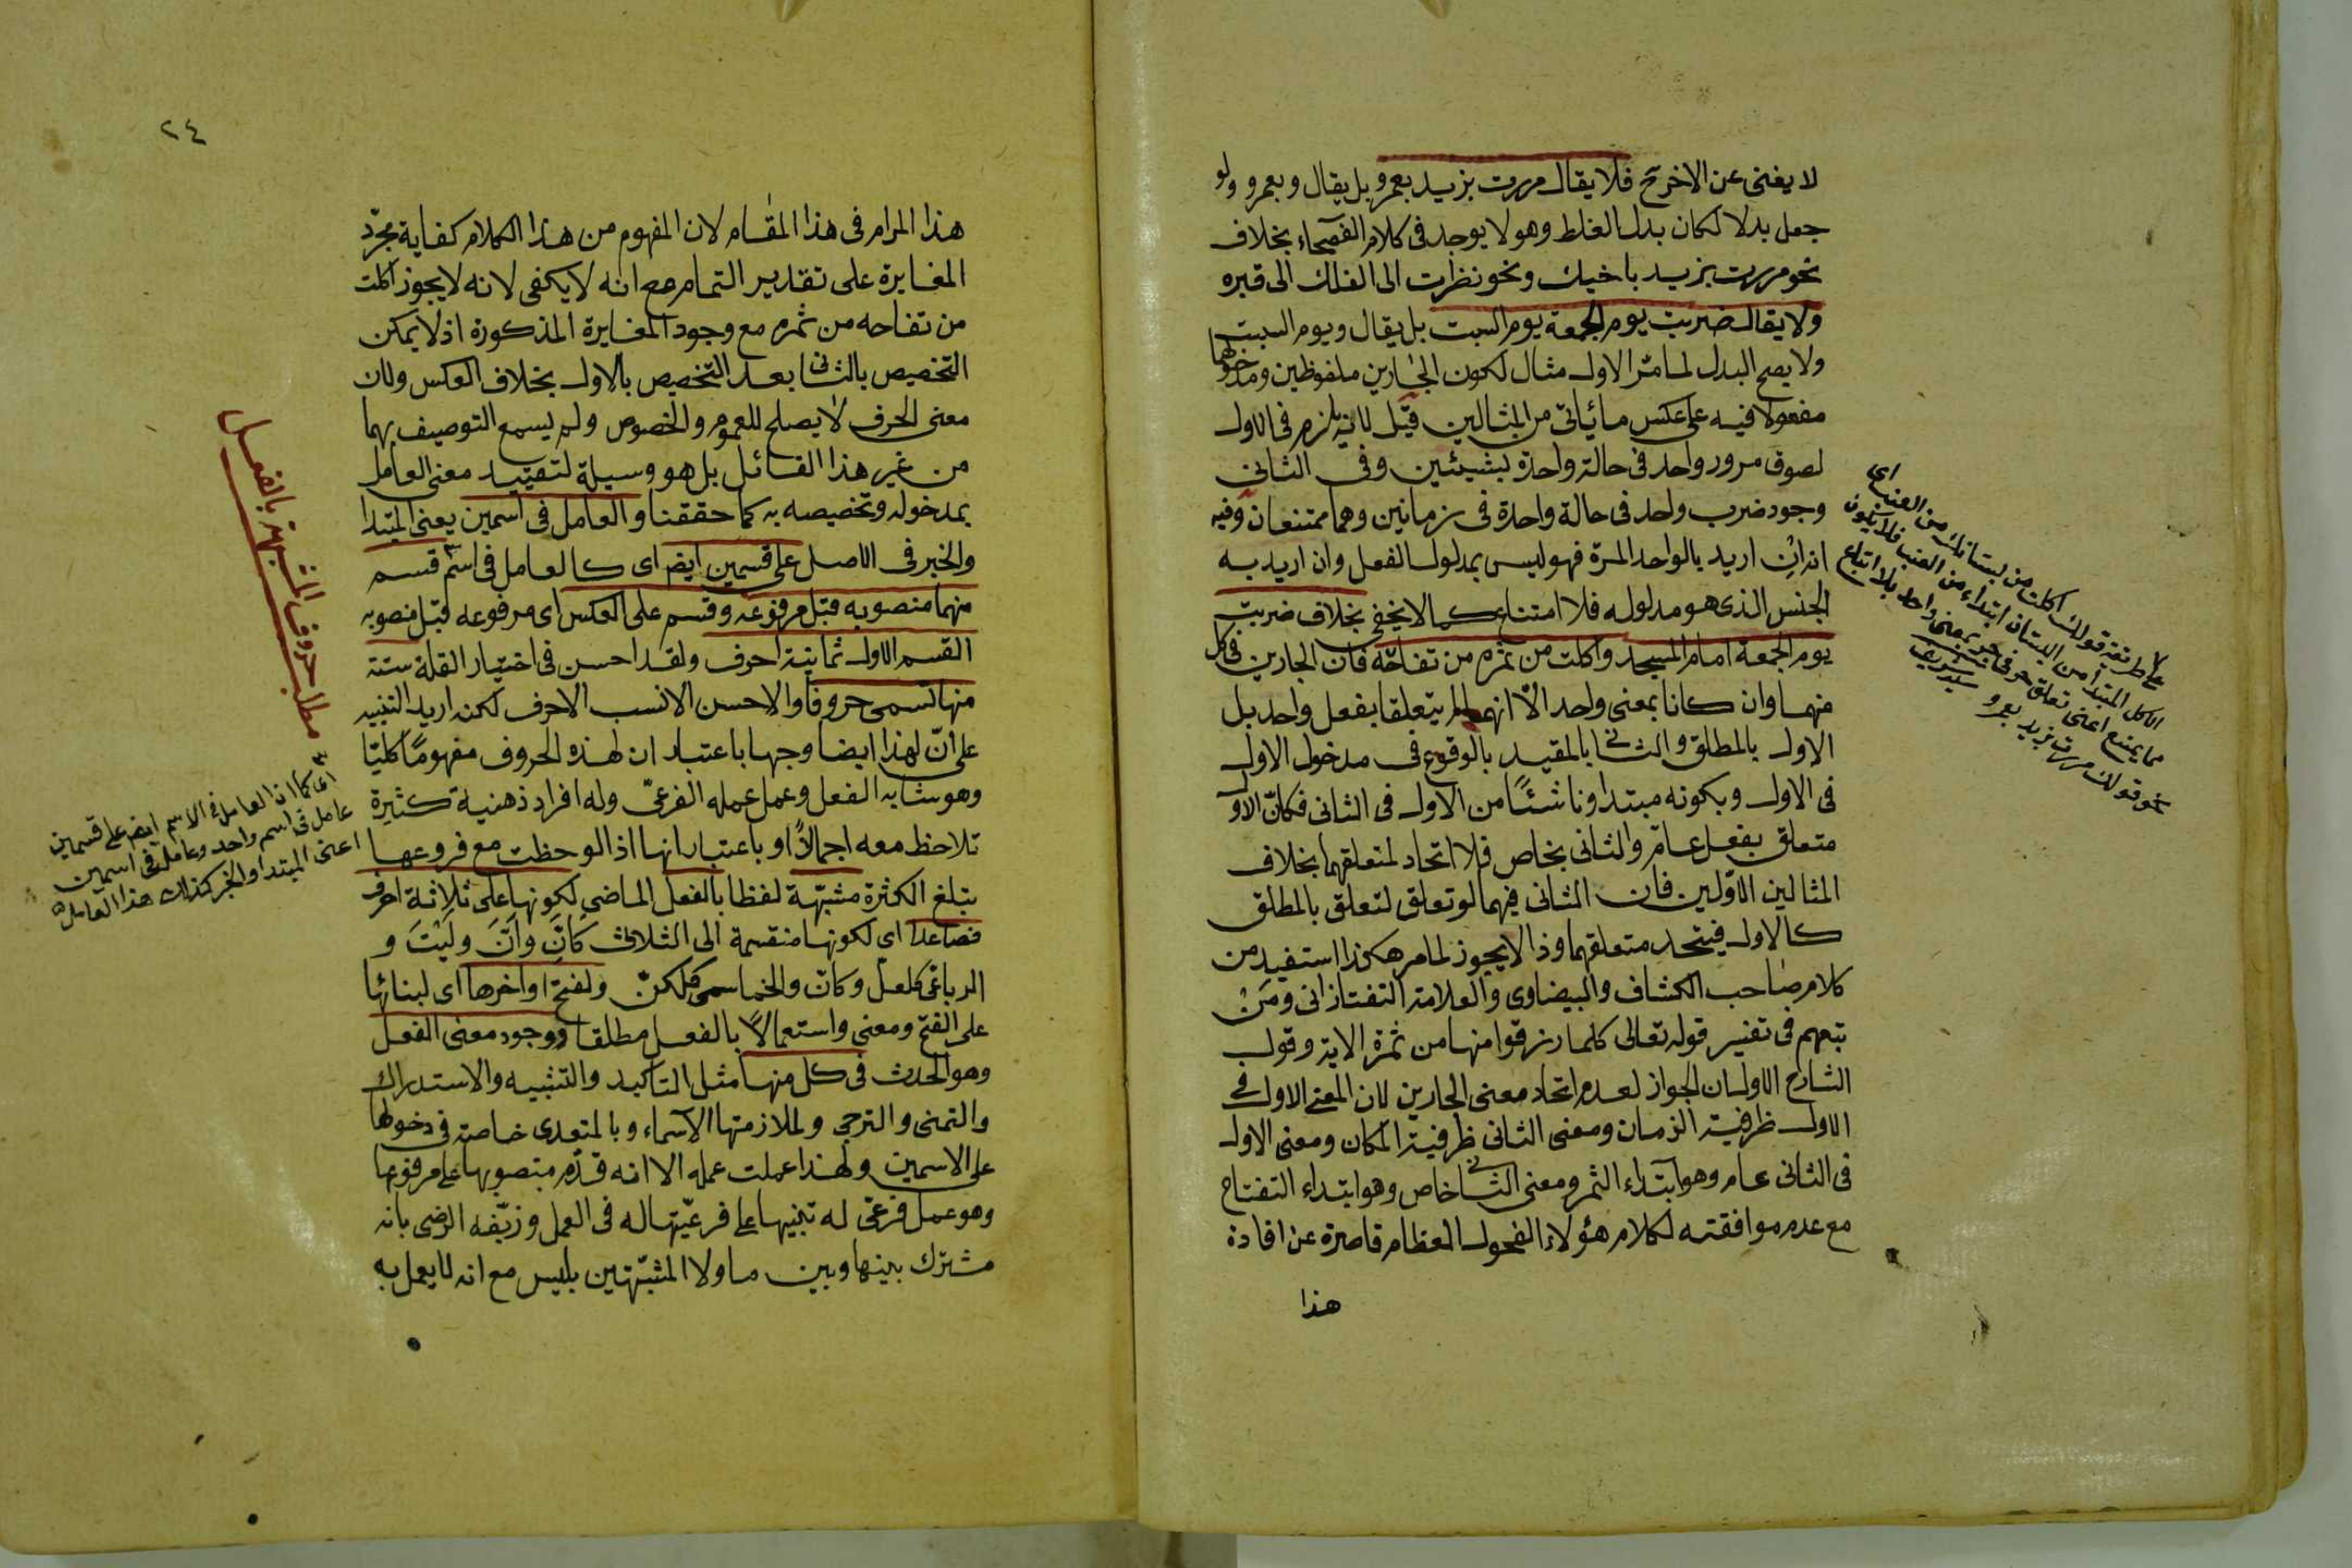 لا يغنى عن الاخر ح فلا يقال مررت بزيد بعمرو بل يقال وبعمرو ولو
جعل بدلا لكان بدل الغلط وهو لا يوجد فى كلام الفصحاء بخلاف
نحو مررت بزيد باخيك ونحو نظرت الى الفلك الى قبره
ولا يقال ضربت يوم الجمعة يوم السبت بل يقال ويوم السبت
ولا يصح البدل لما مرّ الاول مثال لكون الجارين ملفوظين ومدخولهما
مفعولا فيه على عكس ما يأتى من المثالين قيل لانه يلزم فى الاول
لصوق مرور واحد فى حالة واحدة بشيئين وفى الثانى
وجود ضرب واحد فى حالة واحدة فى زمانين وهما ممتنعان وفيه
انه ان اريد بالواحد المرة فهو ليس بمدلول الفعل وان اريد به
الجنس الذى هو مدلوله فلا امتناع كما لا يخفى بخلاف ضربت
يوم الجمعة امام المسجد واكلت من ثمره من تفاحه فان الجارين فى كل
منهما وان كانا بمعنى واحد الا انهما لم يتعلقا بفعل واحد بل
الاول بالمطلق والثانى بالمقيد بالوقوع فى مدخول الاول
فى الاول وبكونه مبتدا وناشئًا من الاول فى الثانى فكانّ الاول
متعلق بفعل عامّ والثانى بخاص فلا اتحاد لمتعلقهما بخلاف
المثالين الاوّلين فان الثانى فيهما لو تعلق لتعلق بالمطلق
كالاول فيتحد متعلقهما وذا لا يجوز لما مر هكذا استفيد من
كلام صاحب الكشاف والبيضاوى والعلامة التفتازانى ومَنْ
تبعهم فى تفسير قوله تعالى كلما رزقوا منها من ثمرة الاية وقول
الشارح الاول ان الجواز لعدم اتحاد معنى الجارين لان المعنى الاول فى
الاول ظرفية الزمان ومعنى الثانى ظرفية المكان ومعنى الاول
فى الثانى عام وهو ابتداء الثمر ومعنى الثانى خاص وهو ابتداء التفاح
مع عدم موافقته لكلام هؤلاء الفحول العظام قاصرة عن افادة
هذا
اى
على طريقة قولك اكلت من بستانك من العنب
الاكل المبتدأ من البستان ابتداء من العنب فلا يكون
مما يمتنع اعنى تعلق حرفى جر بمعنى واحد بلا اتباع
نحو قولك مررت بزيد بعمرو
٢٤
هذا المرام فى هذا المقام لان المفهوم من هذا الكلام كفاية مجرّد
المغايرة على تقدير التمام مع انه لا يكفى لانه لا يجوز اكلت
من تفاحه من ثمره مع وجود المغايرة المذكورة اذ لا يمكن
التخصيص بالثانى بعد التخصيص بالاول بخلاف العكس ولان
معنى الحرف لا يصلح للعموم والخصوص ولم يسمع التوصيف بهما
من غير هذا القائل بل هو وسيلة لتقييد معنى العامل
بمدخوله وتخصيصه به كما حققنا والعامل فى اسمين يعنى المبتدا
والخبر فى الاصل على قسمين ايض اى كالعامل فى اسم قسم
منهما منصوبه قبل مرفوعه وقسم على العكس اى مرفوعه قبل منصوبه
القسم الاول ثمانية احرف ولقد احسن فى اختيار القلة ستة
منها تسمى حروفا والاحسن الانسب الاحرف لكنه اريد التنبيه
على انّ لهذا ايضا وجها باعتبار ان لهذه الحروف مفهومًا كليًّا
وهو مشابه الفعل وعمل عمله الفرعىّ وله افراد ذهنية كثيرة
تلاحظ معه اجمالًا او باعتبار انها اذا لوحظت مع فروعها
تبلغ الكثرة مشبّهة لفظا بالفعل الماضى لكونها على ثلاثة احرف
فصاعدا اى لكونها منقسمة الى الثلاثى كَانَّ وَاَنَّ ولَيْتَ و
الرباعى كلعل وكانّ والخماسى كلكنّ ولفتح اواخرها اى لبنائها
على الفتح ومعنى واستعمالًا بالفعل مطلقا ووجود معنى الفعل
وهو الحدث فى كل منها مثل التاكيد والتشبيه والاستدراك
والتمنى والترجى ولملازمتها الاسماء وبالمتعدى خاصة فى دخولها
على الاسمين ولهذا عملت عمله الا انه قدّم منصوبها على مرفوعها
وهو عمل فرعىّ له تنبيها على فرعيّتها له فى العمل وزيّفه الرضى بانه
مشترك بينها وبين ما ولا المشبّهتين بليس مع انه لا يعمل به
مطلب حروف المشبهة بالفعل
اى كما ان العامل فى الاسم ايض على قسمين
عامل فى اسم واحد وعامل فى اسمين
اعنى المبتدا والخبر كذلك هذا العامل